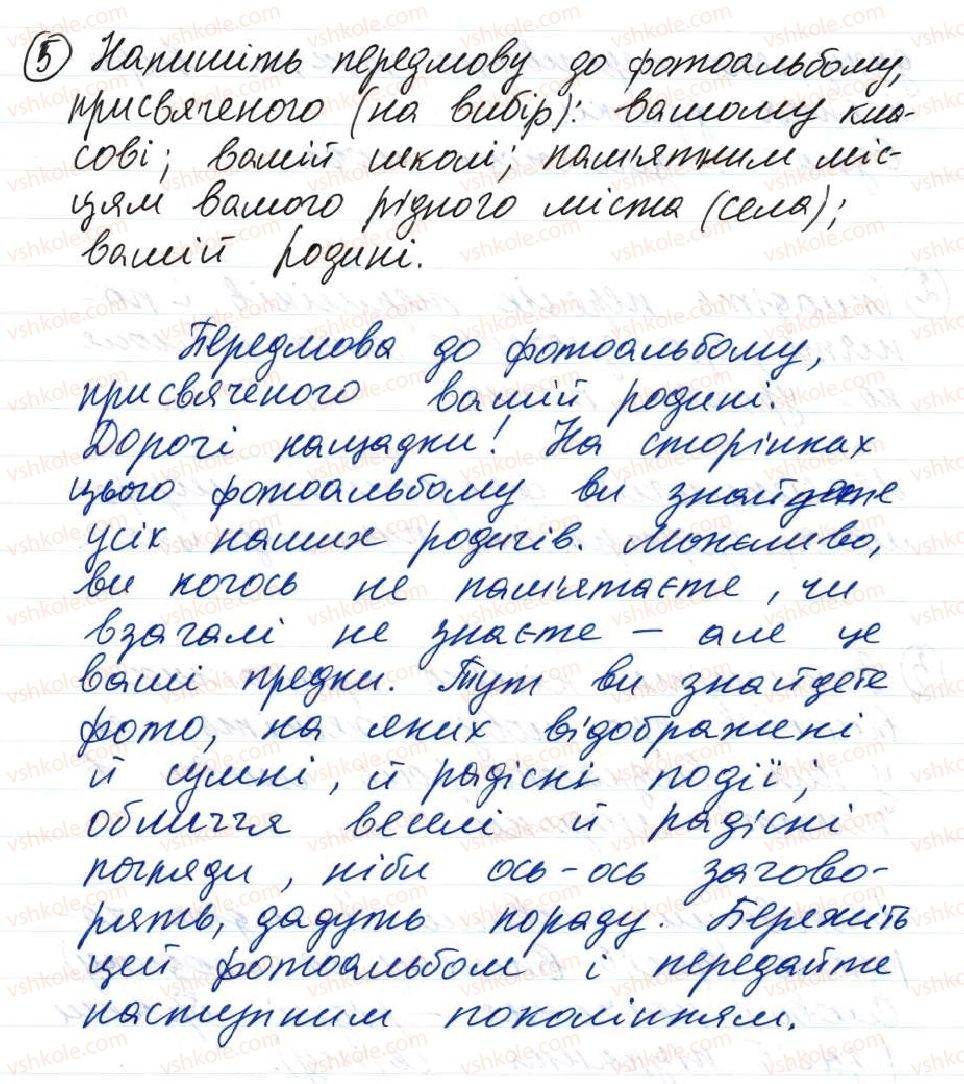 5 Напишіть передмову до фотоальбому,
присвяченого (на вибір): вашому кла-
сові; вашій школі; пам'ятним міс-
цям вашого рідного міста (села);
вашій родині.
Передмова до фотоальбому,
присвяченого вашій родині.
Дорогі нащадки! На сторінках
цього фотоальбому ви знайдете
усіх наших родичів. Можливо,
ви когось не пам'ятаєте, чи
взагалі не знаєте – але це
ваші предки. Тут ви знайдете
фото, на яких відображені
й сумні, й радісні події,
обличчя веселі й радісні
погляди, ніби ось-ось загово-
рять, дадуть пораду. Бережіть
цей фотоальбом і передайте
наступним поколінням.